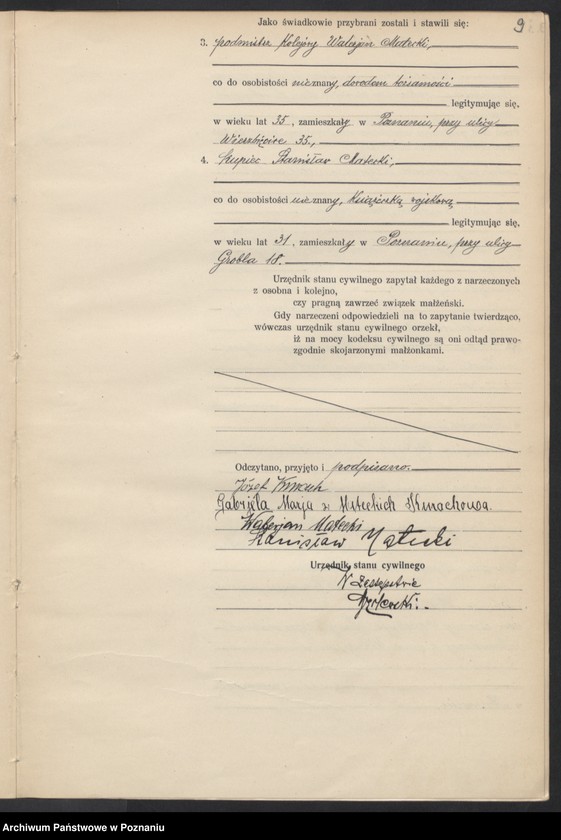 9
Jako świadkowie przybrani zostali i stawili się:
3. podmistrz kolejowy Walerjan Matecki,
co do osobistości nieznany, dowodem tożsamości
legitymując się,
w wieku lat 35, zamieszkały w Poznaniu, przy ulicy
35.,
4. kupiec Stanisław Matecki,
co do osobistości nieznany, książeczką wojskową
legitymując się,
w wieku lat 31, zamieszkały w Poznaniu, przy ulicy
Grobla 18.
Urzędnik stanu cywilnego zapytał każdego z narzeczonych
z osobna i kolejno,
czy pragną zawrzeć związek małżeński.
Gdy narzeczeni odpowiedzieli na to zapytanie twierdząco,
wówczas urzędnik stanu cywilnego orzekł,
iż na mocy kodeksu cywilnego są oni odtąd prawo-
zgodnie skojarzonymi małżonkami.
Odczytano, przyjęto i podpisano.
Józef
Gabrjela Marja z Mateckich
Walerjan Matecki
Stanisław Matecki
Urzędnik stanu cywilnego
W zastępstwie
Archiwum Państwowe w Poznaniu